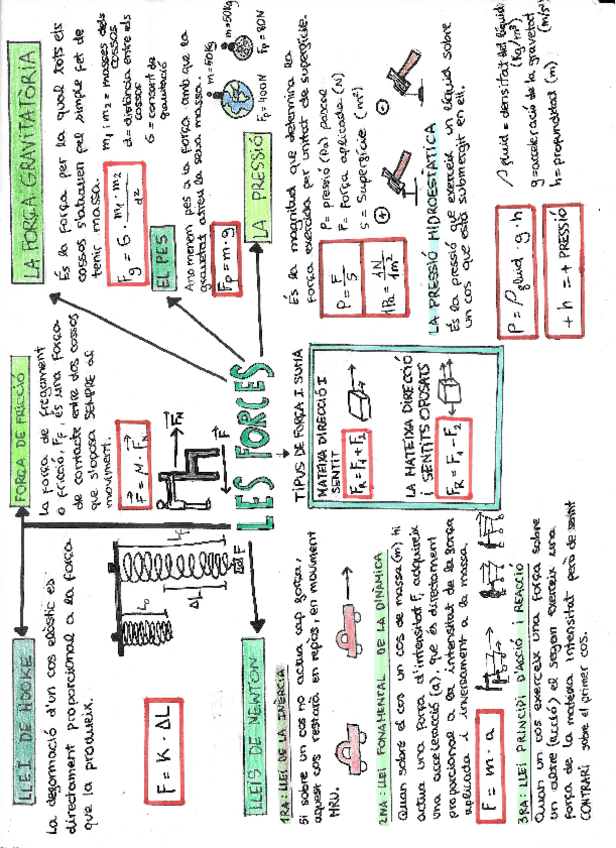 LES FORCES
LLEI DE HOOKE
La deformació d'un cos elàstic és
directament proporcional a la força
que la produeix.
F = K · ΔL
L₀
ΔL
F
FORÇA DE FRICCIÓ
La força de fregament
o fricció, FF, és una força
de contacte entre dos cossos
que s'oposa SEMPRE al
moviment.
F = μ · FN
FN
F
LA FORÇA GRAVITATÒRIA
És la força per la qual tots els
cossos s'atrauen pel simple fet de
tenir massa.
Fg = G · m₁ · m₂ / d²
m₁ i m₂ = masses dels
cossos
d = distància entre els
cossos
G = constant de
gravitació
EL PES
Anomenem pes a la força amb que la
gravetat atreu la seva massa.
Fp = m · g
m=50kg
m=50kg
Fp = 80N
LA PRESSIÓ
És la magnitud que determina la
força exercida per unitat de superfície.
P = F/S
1Pa = 1N/1m²
P = pressió (Pa) pascal
F = Força aplicada (N)
S = Superfície (m²)
LA PRESSIÓ HIDROESTÀTICA
És la pressió que exerceix un líquid sobre
un cos que està submergit en ell.
P = ρfluid · g · h
+ h = + PRESSIÓ
ρ fluid = densitat del líquid
(kg/m³)
g = acceleració de la gravetat
h = profunditat (m)
LLEIS DE NEWTON
1RA: LLEI DE LA INÈRCIA
Si sobre un cos no actua cap força,
aquest cos restarà en repòs, en moviment
MRU.
2NA: LLEI FONAMENTAL DE LA DINÀMICA
Quan sobre el cos un cos de massa (m) hi
actua una força d'intensitat F, adquireix
una acceleració (a), que és directament
proporcional a la intensitat de la força
aplicada i inversament a la massa.
F = m · a
3RA: LLEI PRINCIPI D'ACCIÓ I REACCIÓ
Quan un cos exerceix una força sobre
un altre (acció) el segon exerceix una
força de la mateixa intensitat però de sentit
CONTRARI sobre el primer cos.
TIPUS DE FORÇA I SUMA
MATEIXA DIRECCIÓ I
SENTIT
FR = F₁ + F₂
LA MATEIXA DIRECCIÓ
i SENTITS OPOSATS
FR = F₁ - F₂